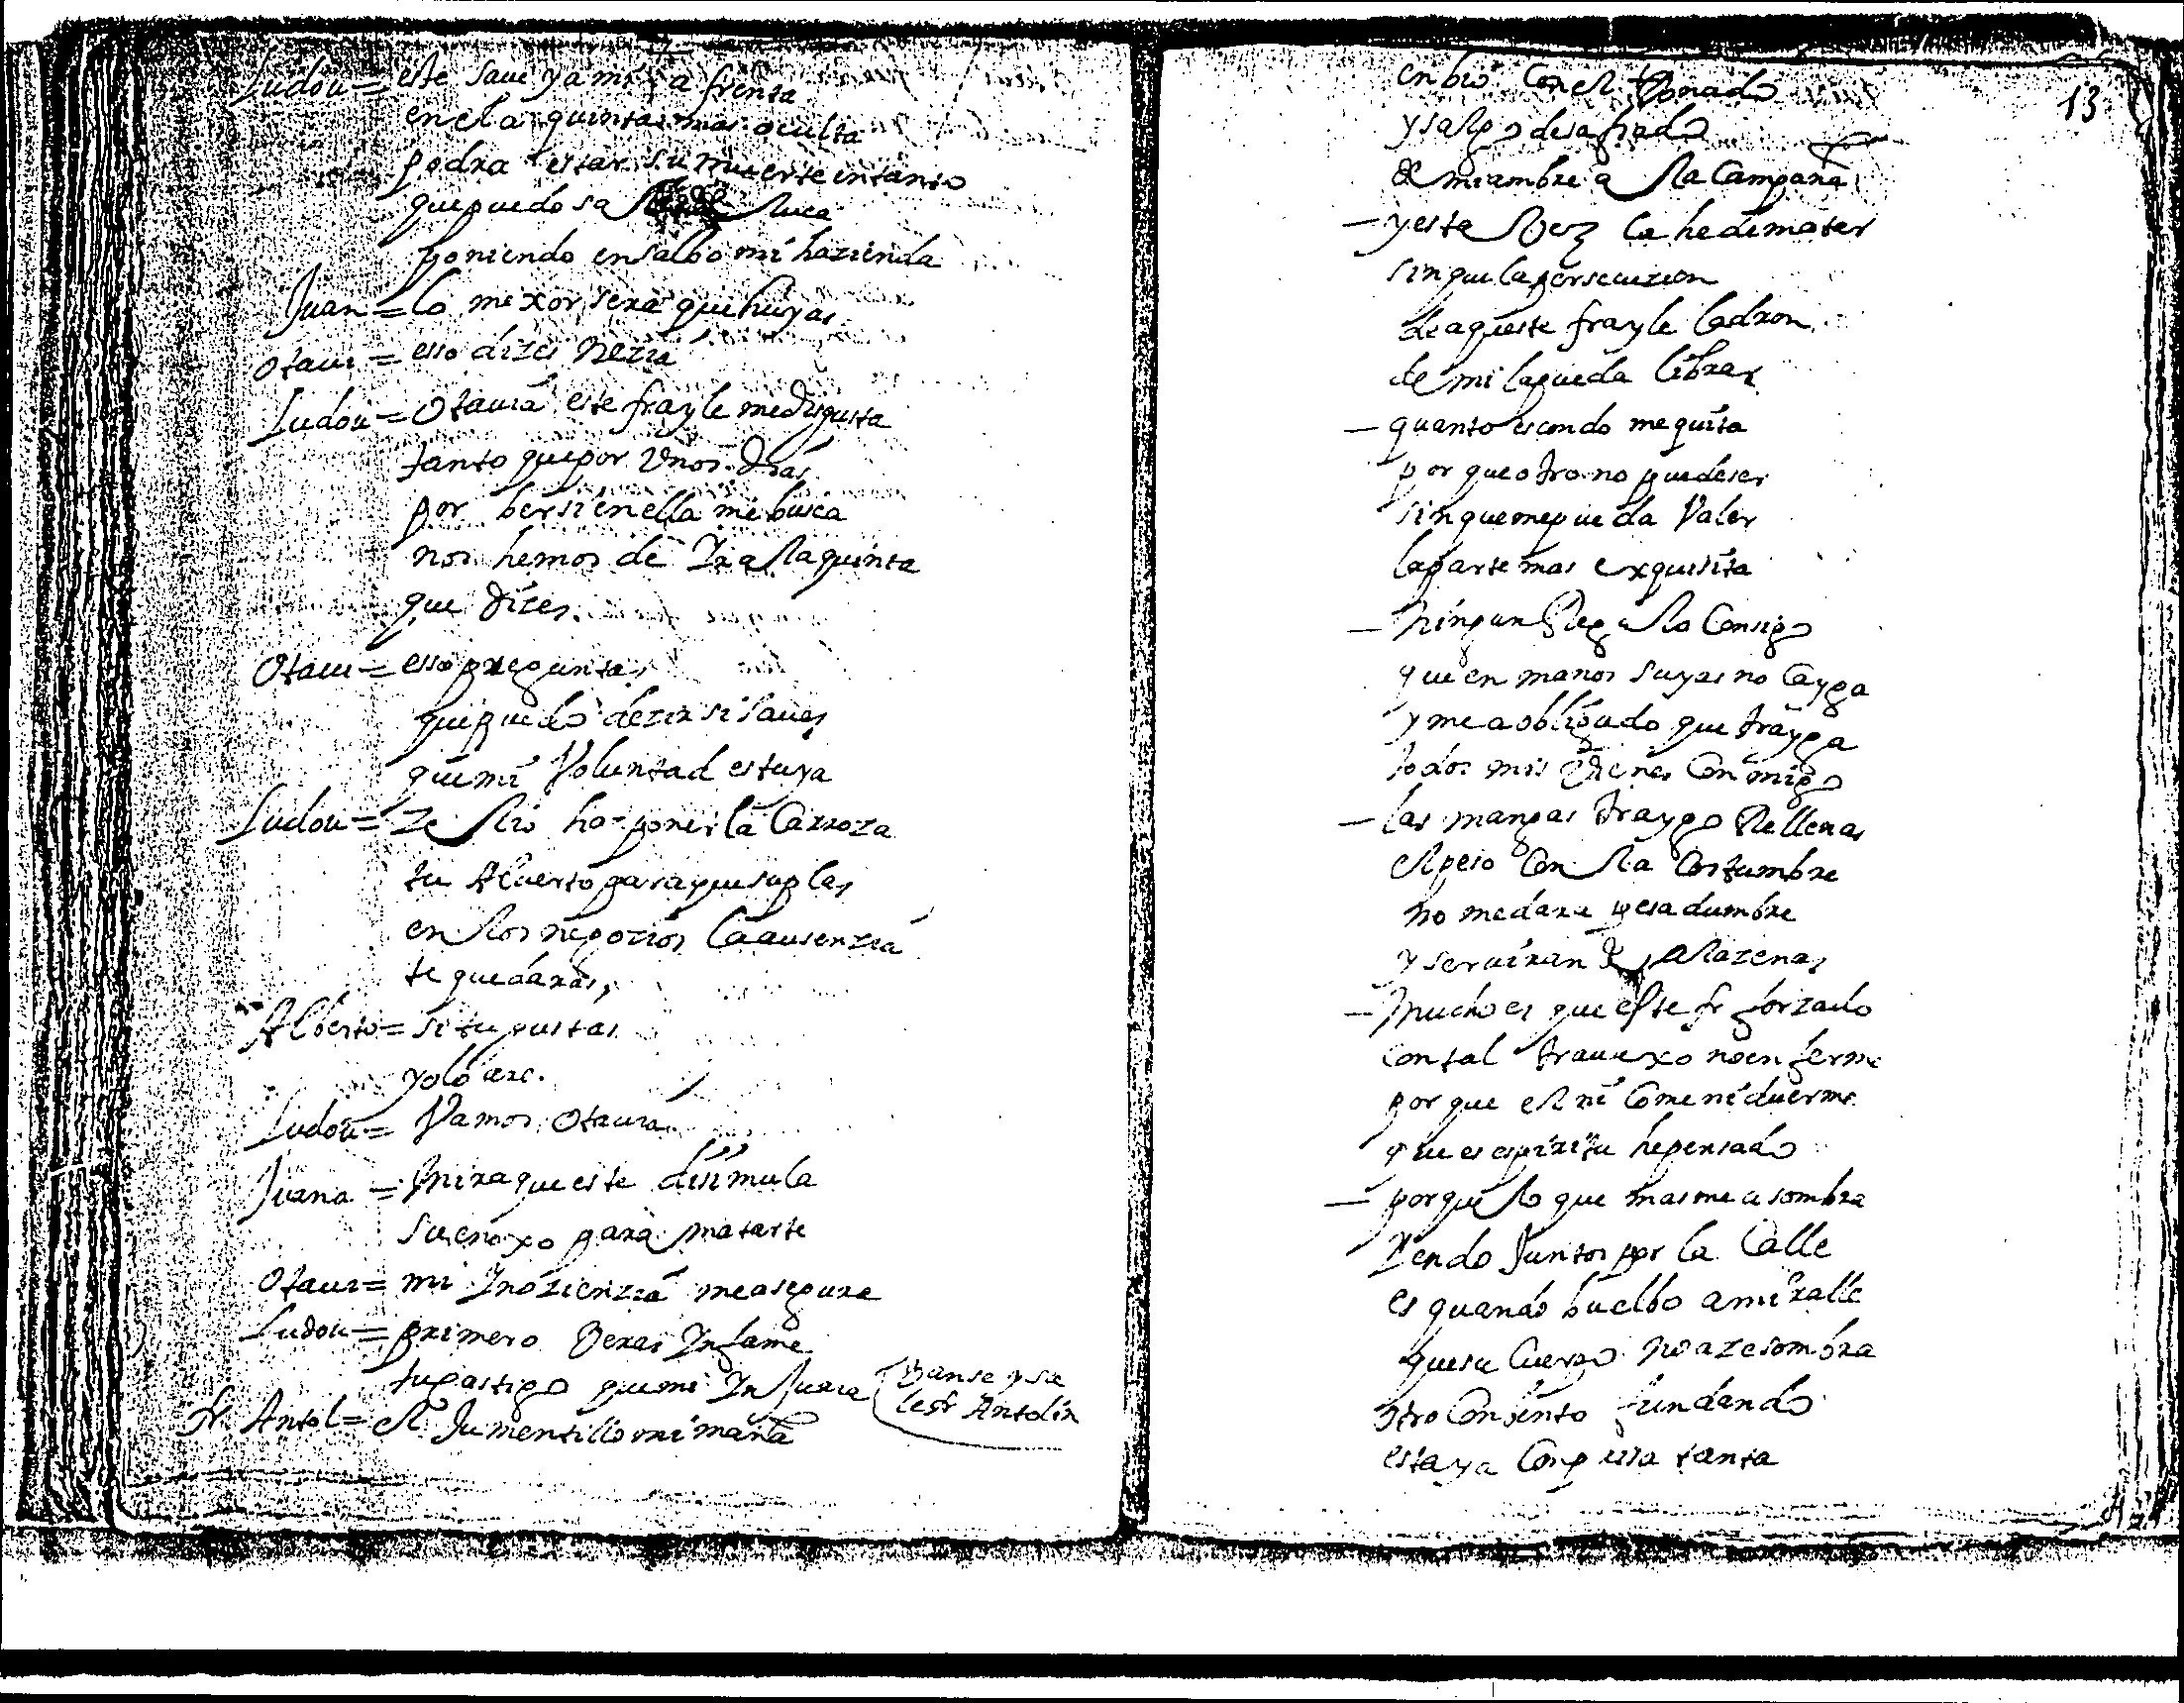 Ludou = este saue ya mi afrenta
en ella quinta mas oculta
podra estar su muerte intanto
que puedo sa luca
poniendo en salbo mi hazienda
Juan = lo mexor sera que huyas
otaui = esso dizes nezia
Ludou = Otauia este frayle me disgusta
tanto que por vnos dias
por ber si en ella me busca
nos hemos de Ir a la quinta
que dizes.
Otaui = esso preguntas
que puedo dezir si saues
que mi Voluntad es tuya
Ludou = Zelio ha poner la Carroza
tu Alberto para que suplas
en los negozios la ausenzia
te quedaras,
Alberto = si tu gustas
yo lo are.
Ludou = Vamos Otauia
Juana = mira que este disimula
su enoxo para matarte
Otaui = mi Ynozienzia me asegura
Ludou = primero veras Ynfame
tu castigo que mi Ynjuria
Banse y sa
le fr Antolin
fr Antol = el Jumentillo mi maña
13
enbio con el donado
y salgo desafiado
de mi ambre a la Campaña
- y esta vez la he de matar
sin que la persecuzion
de aqueste frayle ladron
de mi la pueda librar
- quanto escondo me quita
por que otro no puede ser
sin que me pueda Valer
la parte mas exquisita
- ningun Regalo Consigo
que en manos suyas no Cayga
y me a obligado que trayga
todos mis vienes Conmigo
- las mangas traygo Rellenas
el peso Con la Costumbre
no me dara pesadumbre
y seruiran de alazenas
- mucho es que este fr forzado
con tal trauaxo no enferme
por que el ni Come ni duerme
que es espiritu he pensado
- porque lo que mas me asombra
Yendo Juntos por la Calle
es quando buelbo a miralle
que su Cuerpo no aze sombra
otro Conbento fundando
esta ya Con prissa tanta